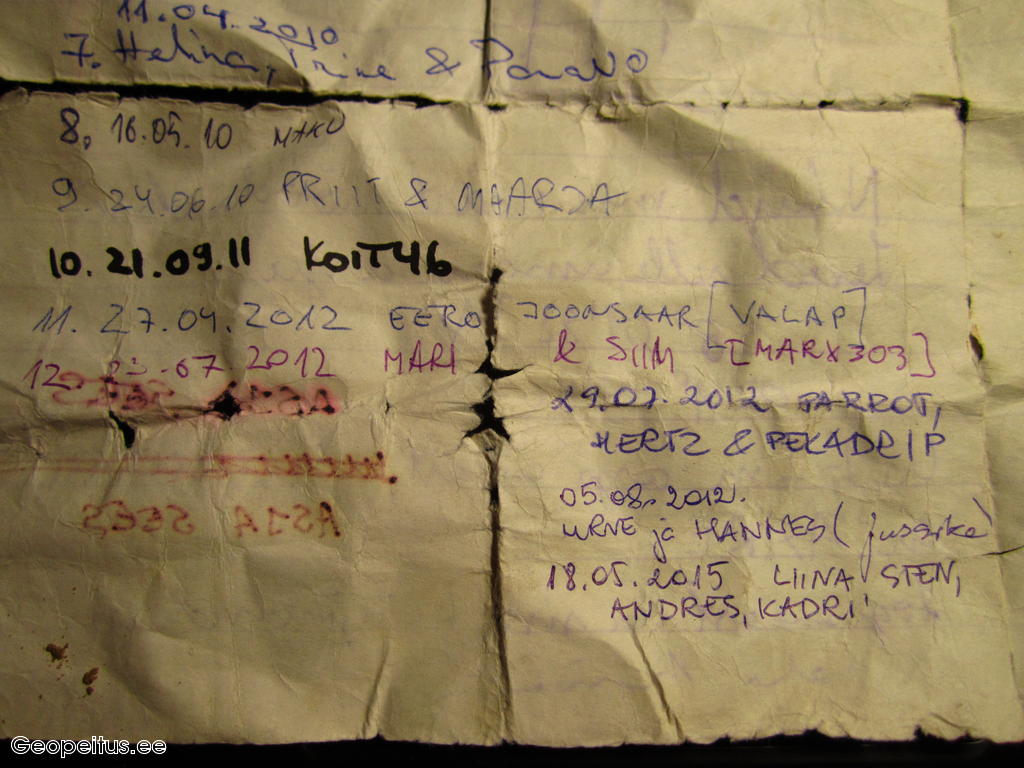 11.04.2010.
7. Helina, Triine & Paavo
8. 16.05.10 MAKU
9. 24.06.10 PRIIT & MAARJA
10. 21.09.11 KOIT46
11. 27.04.2012 EERO JOONSAAR [VALAP]
12. 07 2012 MARI & SIIM [MARX303]
29.07.2012 PARROT,
HERTZ & PEKADRIP
05.08.2012.
URVE ja HANNES (jussike)
18.05.2015 LIINA STEN,
ANDRES, KADRI
ASJA SEES
ASJA SEES
Geopeitus.ee